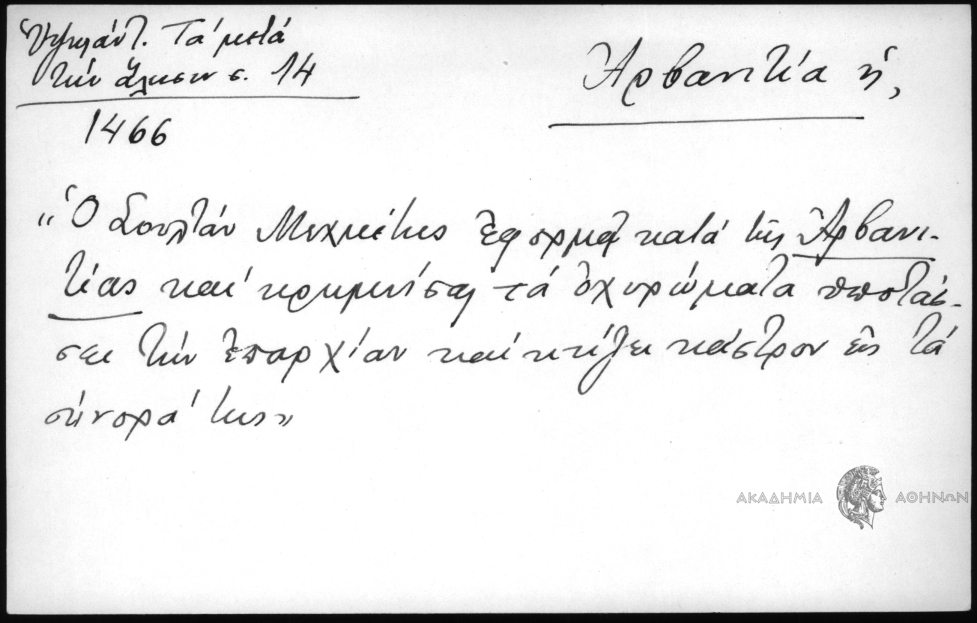 Ὑψηλάντ. Τά μετά
τήν ἅλωσιν σ. 14
1466
Ἀρβανιτία ἡ,
"Ὁ Σουλτάν Μεχμέτης ἐφορμᾷ κατά τῆς Ἀρβανι-
τίας καί κρημνίσας τά ὀχυρώματα ὑποτάσ-
σει τήν ἐπαρχίαν καί κτίζει κάστρον εἰς τά
σύνορά της"
ΑΚΑΔΗΜΙΑ ΑΘΗΝΩΝ